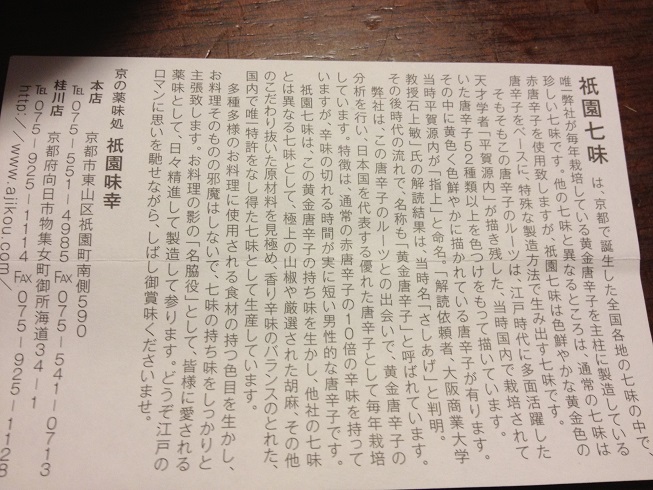 祇園七味 は、京都で誕生した全国各地の七味の中で、
唯一弊社が毎年栽培している黄金唐辛子を主柱に製造している
珍しい七味です。他の七味と異なるところは、通常の七味は
赤唐辛子を使用致しますが、祇園七味は色鮮やかな黄金色の
唐辛子をベースに、特殊な製造方法で生み出す七味です。
そもそもこの唐辛子のルーツは、江戸時代に多面活躍した
天才学者「平賀源内」が描き残した、当時国内で栽培されて
いた唐辛子52種類以上を色つけをもって描いています。
その中に黄色く色鮮やかに描かれている唐辛子が有ります。
当時平賀源内が「指上」と命名。「解読依頼者、大阪商業大学
教授石上敏」氏の解読結果は、当時名「さしあげ」と判明。
その後時代の流れで、名称も「黄金唐辛子」と呼ばれています。
弊社は、この唐辛子のルーツとの出会いで、黄金唐辛子の
分析を行い、日本国を代表する優れた唐辛子として毎年栽培
しています。特徴は、通常の赤唐辛子の10倍の辛味を持って
いますが、辛味の切れる時間が実に短い男性的な唐辛子です。
祇園七味は、この黄金唐辛子の持ち味を生かし、他社の七味
とは異なる七味として、極上の山椒や厳選された胡麻、その他
のこだわり抜いた原材料を見極め、香り辛味のバランスのとれた、
国内で唯一特許をなし得た七味として生産しています。
多種多様のお料理に使用される食材の持つ色目を生かし、
お料理そのものの邪魔はしないで、七味の持ち味をしっかりと
主張致します。お料理の影の「名脇役」として、皆様に愛される
薬味として、日々精進して製造して参ります。どうぞ江戸の
ロマンに思いを馳せながら、しばし御賞味くださいませ。
京の薬味処 祇園味幸
本店 京都市東山区祇園町南側590
TEL 075-551-4985 FAX 075-541-0713
桂川店 京都府向日市物集女町御所海道34-1
TEL 075-925-1114 FAX 075-925-1128
http://www.ajikou.com/